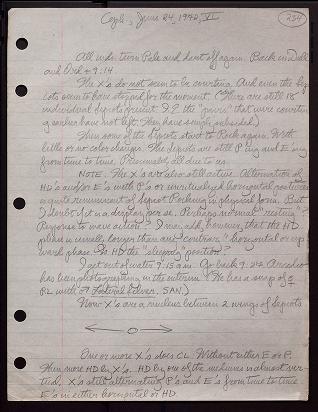 Ceph., June 24, 1942, VI
234
All
turn Pale and dart off again. Back
and
9:14
The X's do not seem to be courting. And even the big
seem to have stopped for the moment. (There are still 18
individual Sepiots present. I.e. the "pairs" that were courting
earlier have not left. They have simply subsided.)
Then some of the Sepiots start to Rock again. With
little or no color change. The Sepiots are still P'ing and E'ing
from time to time. Presumably all due to us.
NOTE. The X's are also still active. Alternation of
HD's and/or E's with P's or unritualized horizontal postures
is quite reminiscent of Sepiot Rocking in physical form. But
I doubt if it is a display per se. Perhaps normal "resting"?
Response to wave action? I may add, however, that the HD
phase is usually longer than any "contrary" horizontal or up-
ward phase. Is HD the "sleeping position"?
I get out of water 9:15 a.m. Go back 9:22. Arcadio
has been photographing in the interim. (He has a snap of
PL with
Lateral Silver, SAN.)
Now X's are a nucleus between 2 wings of Sepiots
One or more X's does CL. Without either E or P.
Then more HD by X's. HD by one of the medium is almost ver-
tical. X's still alternating P's and E's from time to time
E's in either horizontal or HD.